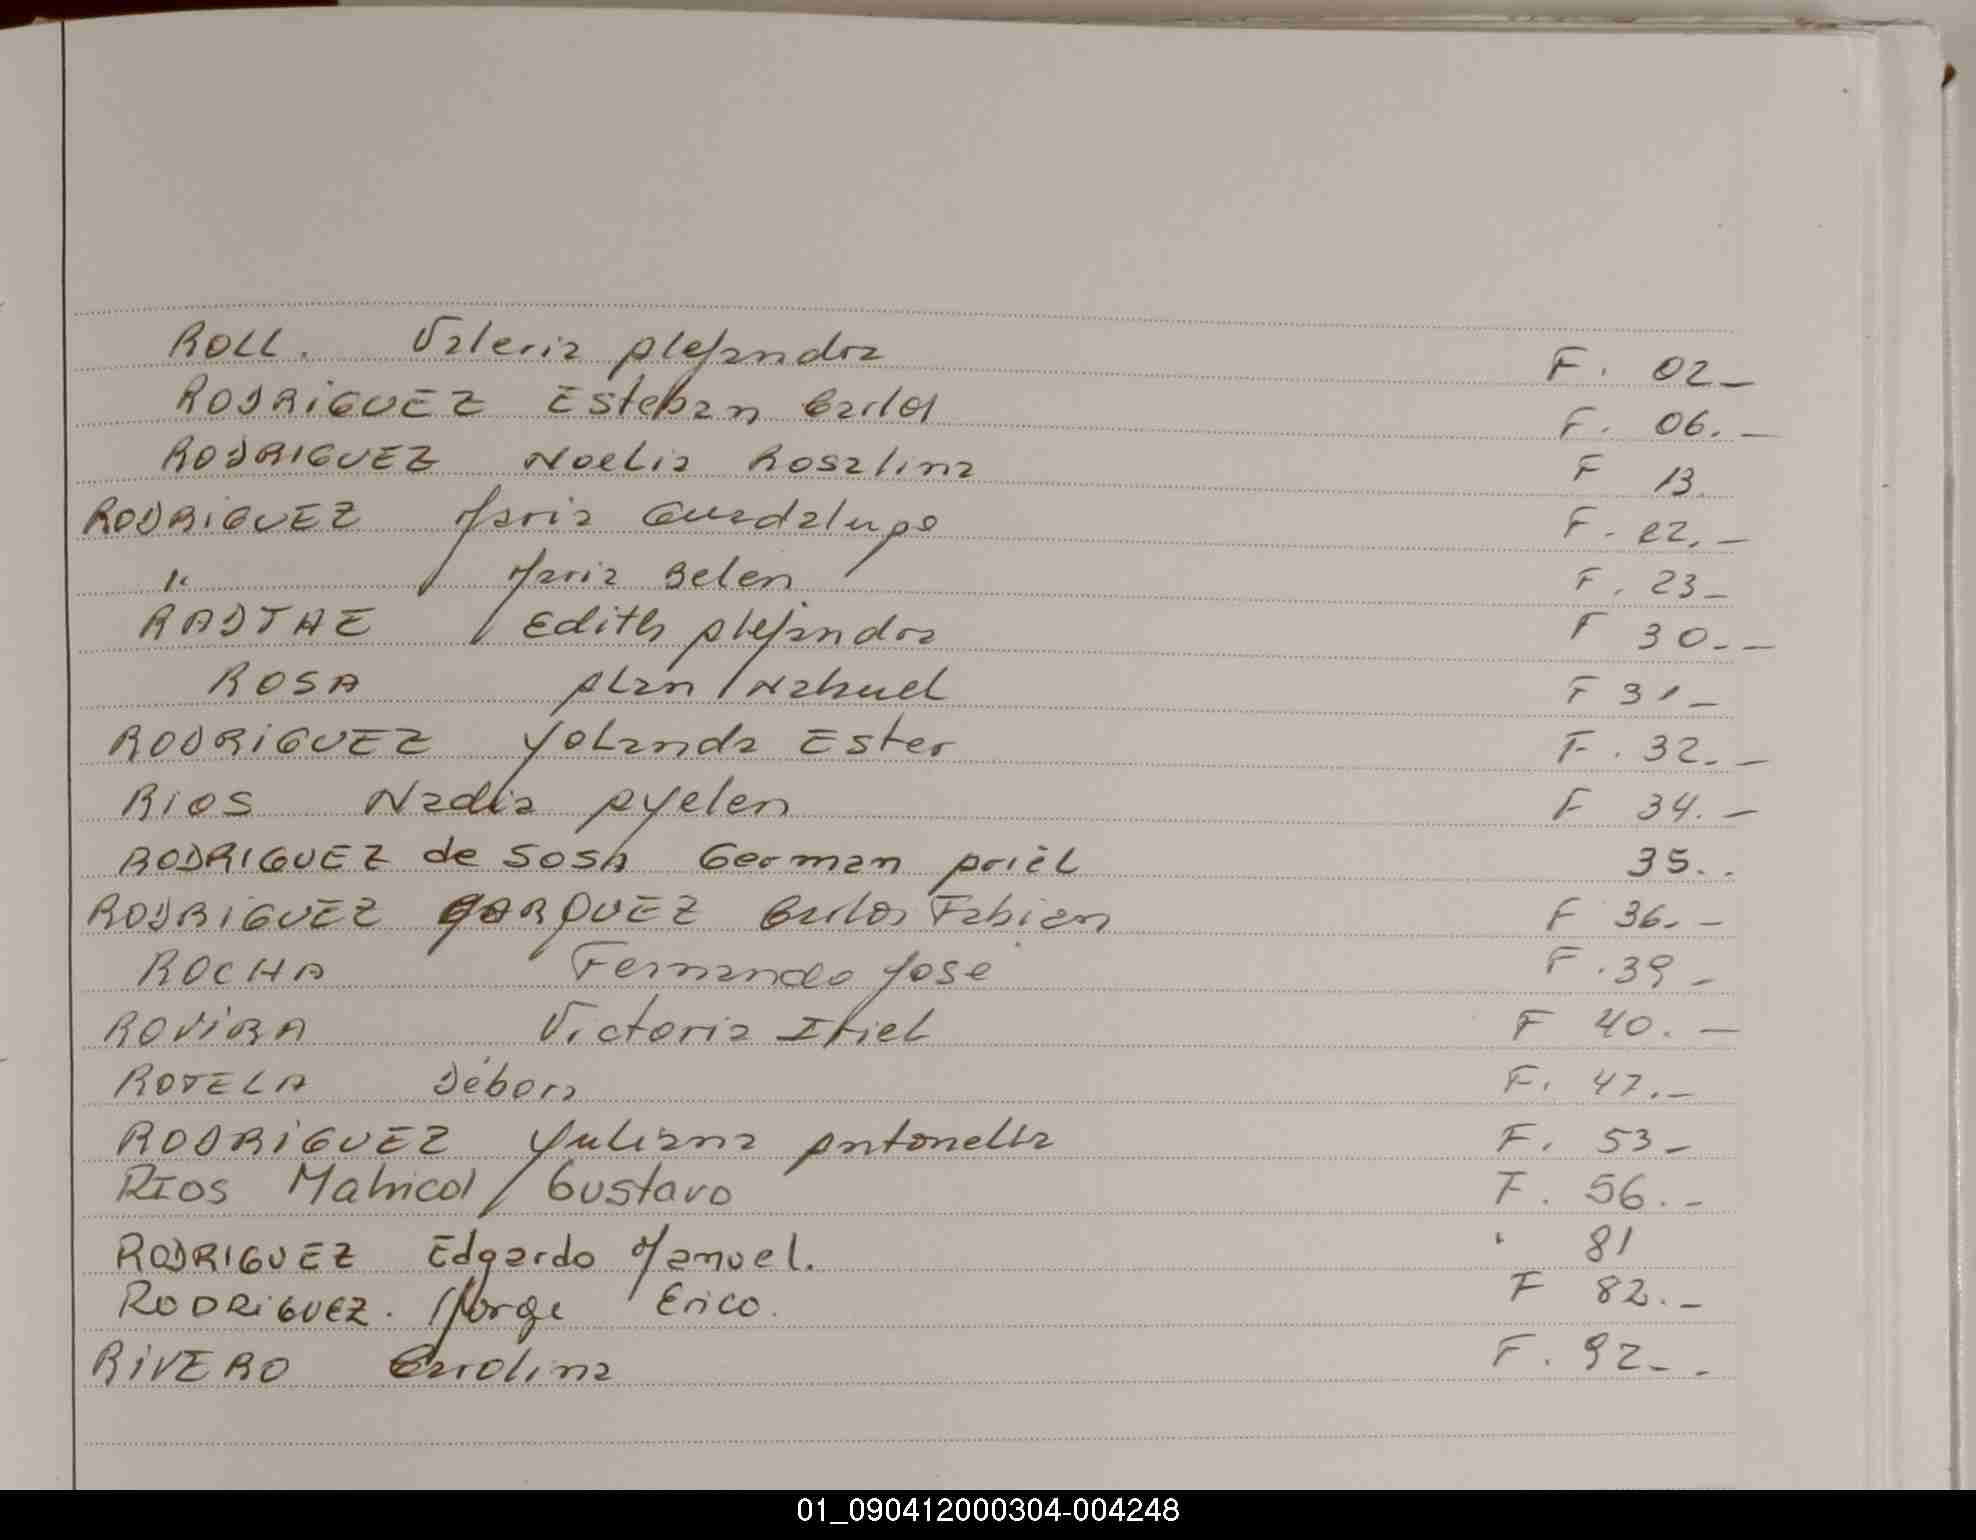 ROLL. Valeria Alejandra F. 02_
RODRIGUEZ Esteban Carlos F. 06._
RODRIGUEZ Noelia Rosalina F 13.
RODRIGUEZ Maria Guadalupe F. 22._
" Maria Belen F. 23_
RADTHE Edith Alejandra F 30._
ROSA Alan Nahuel F 31_
RODRIGUEZ Yolanda Ester F. 32._
RIOS Nadia Ayelen F 34._
RODRIGUEZ de SOSA German Ariel 35..
RODRIGUEZ MARQUEZ Carlos Fabian F 36._
ROCHA Fernando Jose F. 39_
ROVIRA Victoria Itiel F 40._
ROTELA Débora F. 47._
RODRIGUEZ Yuliana Antonella F. 53_
RIOS Gustavo F. 56._
RODRIGUEZ Edgardo Manuel. 81
RODRIGUEZ. Jorge Erico. F 82._
RIVERO Carolina F. 92_
01_090412000304-004248